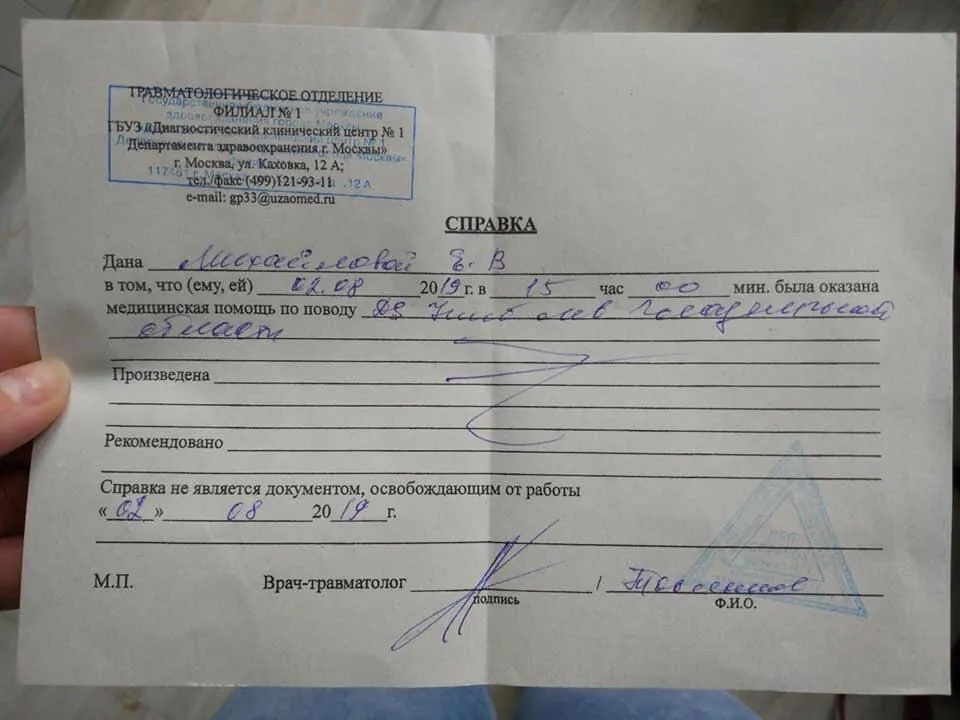 ТРАВМАТОЛОГИЧЕСКОЕ ОТДЕЛЕНИЕ
ФИЛИАЛ № 1
ГБУЗ «Диагностический клинический центр № 1
Департамента здравоохранения г. Москвы»
г. Москва, ул. Каховка, 12 А;
тел./факс (499)121-93-11
e-mail: gp33@uzaomed.ru
СПРАВКА
Дана Михайловой Е. В
в том, что (ему, ей) 02.08 2019 г. в 15 час 00 мин. была оказана
медицинская помощь по поводу DS Ушиб лев
области
Произведена
Рекомендовано
Справка не является документом, освобождающим от работы
«02» 08 2019 г.
М.П. Врач-травматолог /
подпись Ф.И.О.